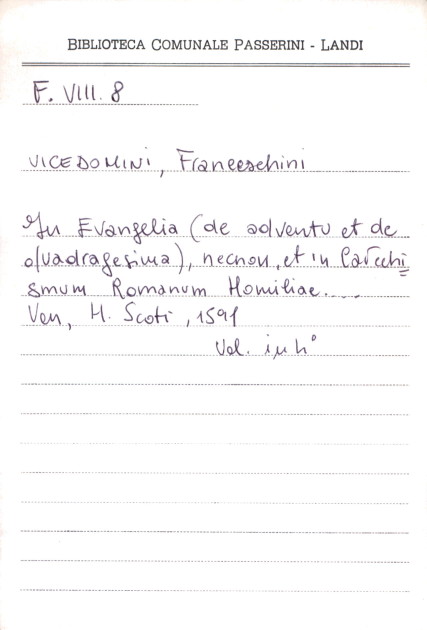 BIBLIOTECA COMUNALE PASSERINI - LANDI
F. VIII. 8
VICEDOMINI, Franceschini
In Evangelia (de adventu et de
quadragesima), necnon, et in Catechi
smum Romanum Homiliae....
Ven, H. Scoti, 1591
Vol. in 4°